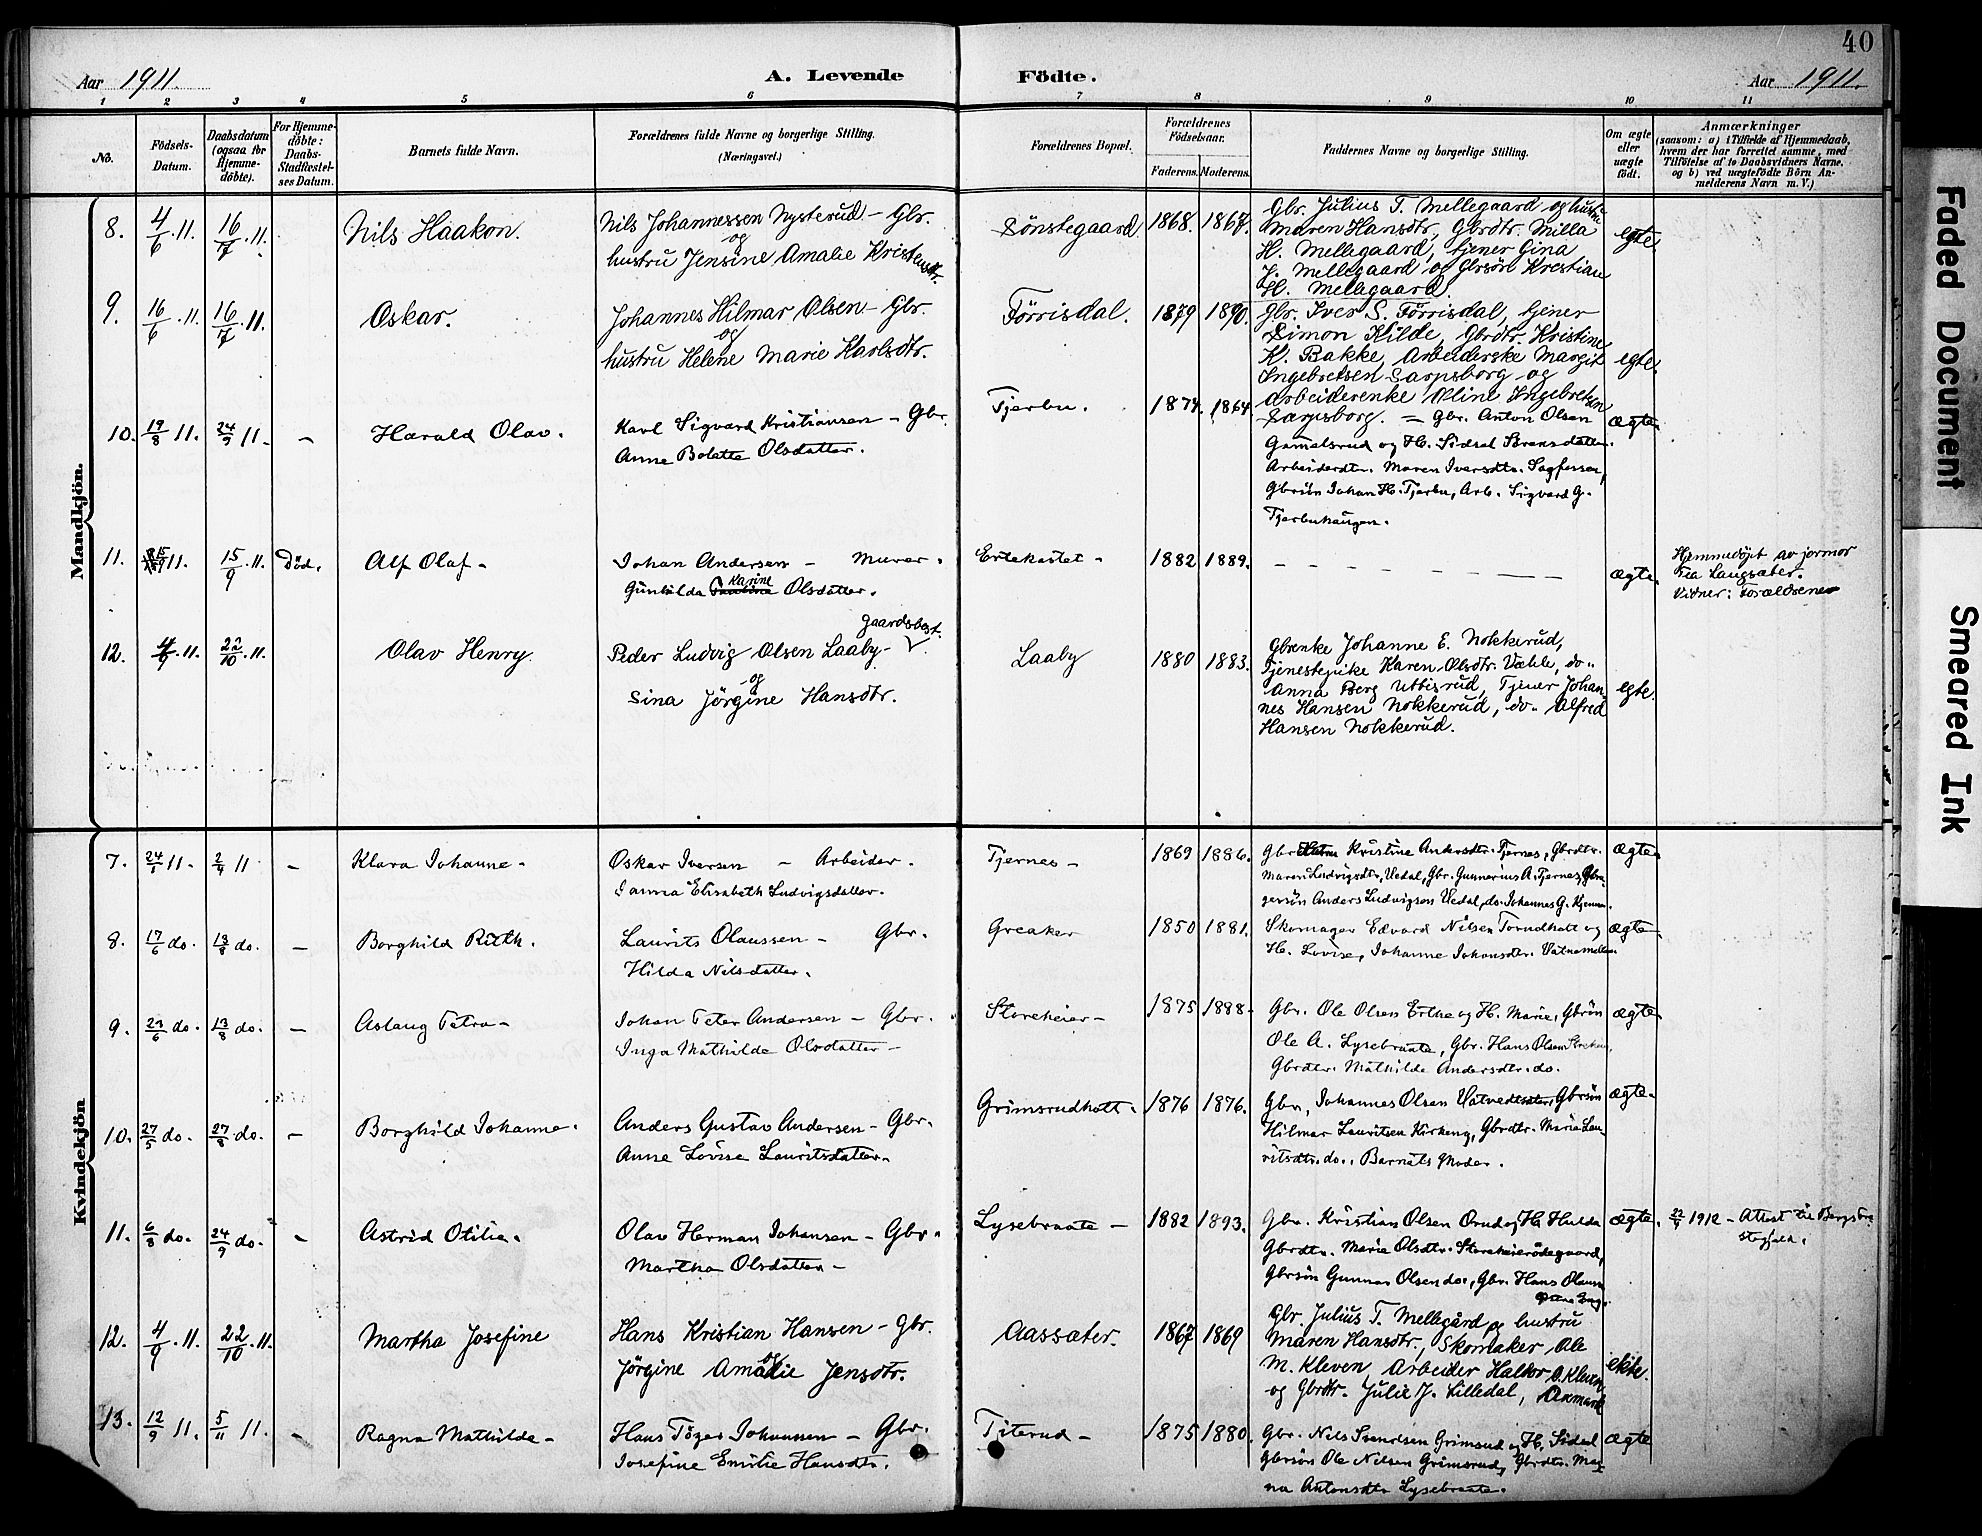 40
Aar 1911.
A. Levende
Födte.
Aar 1911.
1 2 3 4 5 6 7 8 9 10 11
No.
Födsels-Datum.
Daabsdatum (ogsaa for Hjemmedöbte).
For Hjemmedöbte: Daabs-Stadfæstelses Datum.
Barnets fulde Navn.
Forældrenes fulde Navne og borgerlige Stilling.
(Næringsvei.)
Forældrenes Bopæl.
Forældrenes Födselsaar.
Faderens. Moderens.
Faddernes Navne og borgerlige Stilling.
Om ægte eller uægte födt.
Anmærkninger
(saasom: a) i Tilfælde af Hjemmedaab,
hvem der har forrettet samme, med
Tilföielse af to Daabsvidners Navne,
og b) ved uægtefödte Börn Anmelderens Navn m. V.)
Mandkjön.
8. 4/6 .11. 16/7 .11. Nils Haakon.
Nils Johannessen Nysterud - Gbr.
og
hustru Jensine Amalie Kristensdtr.
Sönstegaard. 1868. 1867.
Gbr. Julius T. Mellegaard og hustru
Maren Hansdtr, Gbrdtr. Milla
H. Mellegaard, tjener Gina
J. Mellegaard og Gbrsön Krestian
H. Mellegaard.
egte.
9. 16/6 .11. 16/7 .11. Oskar.
Johannes Hilmar Olsen - Gbr.
og
hustru Helene Marie Karlsdtr.
Förrisdal. 1879 1890.
Gbr. Iver S. Förrisdal, tjener
Simon Kilde, Gbrdtr. Kristine
K. Bakke, Arbeiderske Margit
Ingebretsen Sarpsborg og
arbeiderenke Oline Ingebretsen
Sarpsborg. =
egte.
10. 19/8 11. 24/9 11. - Harald Olav.
Karl Sigvard Kristiansen - Gbr.
Anne Bolette Olsdatter.
Tjerbu. 1874. 1864
Gbr. Anton Olsen
Gamelsrud og H. Sidsel Sörensdatter.
Arbeiderdtr. Maren Iversdtr.
Gbrsön Johan H. Tjerbu, Arb. Sigvard G.
Tjerbuhaugen.
ægte.
11. 15/9 11. 15/9 .11. Död. Alf Olaf -
Johan Andersen - Murer.
Gunhilda Karine Olsdatter.
Ertekastet - 1882 1889.
- - - - - - - -
ægte.
Hjemmedöpt av jormor
Tea Langsæter.
Vidner: Forældrene
12. 4/9 .11. 22/10 .11. Olav Henry
gaardsbest.
Peder Ludvig Olsen Laaby -
og
Sina Jörgine Hansdtr.
Laaby 1880 1883.
Gbrenke Johanne E. Nokkerud,
Tjenestepike Karen Olsdtr. Væhle, do..
Anna Berg Ubbisrud, Tjener Johan-
nes Hansen Nokkerud, do.. Alfred
Hansen Nokkerud.
egte.
Kvindekjön
7. 11. 2/4 11 - Klara Johanne -
Oskar Iversen - Arbeider.
Janna Elisabeth Ludvigsdatter.
Tjernes - 1869 1886.
Gbr Kristine Andersdtr. Tjernes, Gbrdtr.
Maren Ludvigsdtr, Vedal, Gbr. Gunnerius A. Tjernes,
Anders Ludvigsen Vedal, do. Johannes G.
ægte
8. 17/6 do. 13/8 do. - Borghild Ruth.
Laurits Olaussen - Gbr.
Hilda Nilsdatter.
Greaker 1850 1881.
Skomager Edvard Nilsen Torudholt og
H. Lovise, Johanne Johansdtr.
ægte
9. 23/6 do. 13/8 do. - Aslaug Petra -
Johan Peter Andersen - Gbr.
Inga Mathilde Olsdatter -
Storeheier - 1875 1888.
Gbr. Ole Olsen Ertke og H. Marie, Gbrön
Ole A. Lysebraate, Gbr. Hans Olsen
Gbrdtr. Mathilde Andersdtr. do.
ægte
10. 27/5 do. 27/8 do. - Borghild Johanne.
Anders Gustav Andersen - Gbr.
Anne Lovise Lauritsdatter.
Grimsrudholt. 1876 1876.
Gbr. Johannes Olsen Gbrsön
Hilmar Lauritsen Kirkeng, Gbrdtr. Marie Lau-
ritsdtr. do.. Barnets Moder.
ægte
11. 6/8 do. 24/9 do. - Astrid Otilie.
Olav Herman Johansen - Gbr.
Martha Olsdatter -
Lysebraate - 1882 1893.
Gbr. Kristian Olsen Orud og H. Hulda
Gbrdtr. Marie Olsdtr. Storeheierödegaard,
Gbrsön Gunnar Olsen do., Gbr. Hans Olaus
ægte.
1912 - Attest til
12. 4/9 .11. 22/10 .11. Martha Josefine
Hans Kristian Hansen - Gbr.
og
Jörgine Amalie Jensdtr.
Aassæter. 1867 1869
Gbr. Julius T. Mellegård og hustru
Maren Hansdtr., Skomaker Ole
M. Kleven, Arbeider Halvor O. Kleven
og Gbrdtr. Julie J. Lilledal, Aremark
ekte.
13. 12/9 11. 5/11 11. - Ragna Mathilde -
Hans Tözer Johansen - Gbr.
Josefine Emilie Hansdtr.
Titerud - 1875 1880.
Gbr. Nils Svendsen Grimsrud og H. Sidsel
Gbrsön Ole Nilsen Grimsrud, Gbrdtr. Mag-
na Antonsdtr Lysebraate.
ægte
Faded Document
Smeared Ink